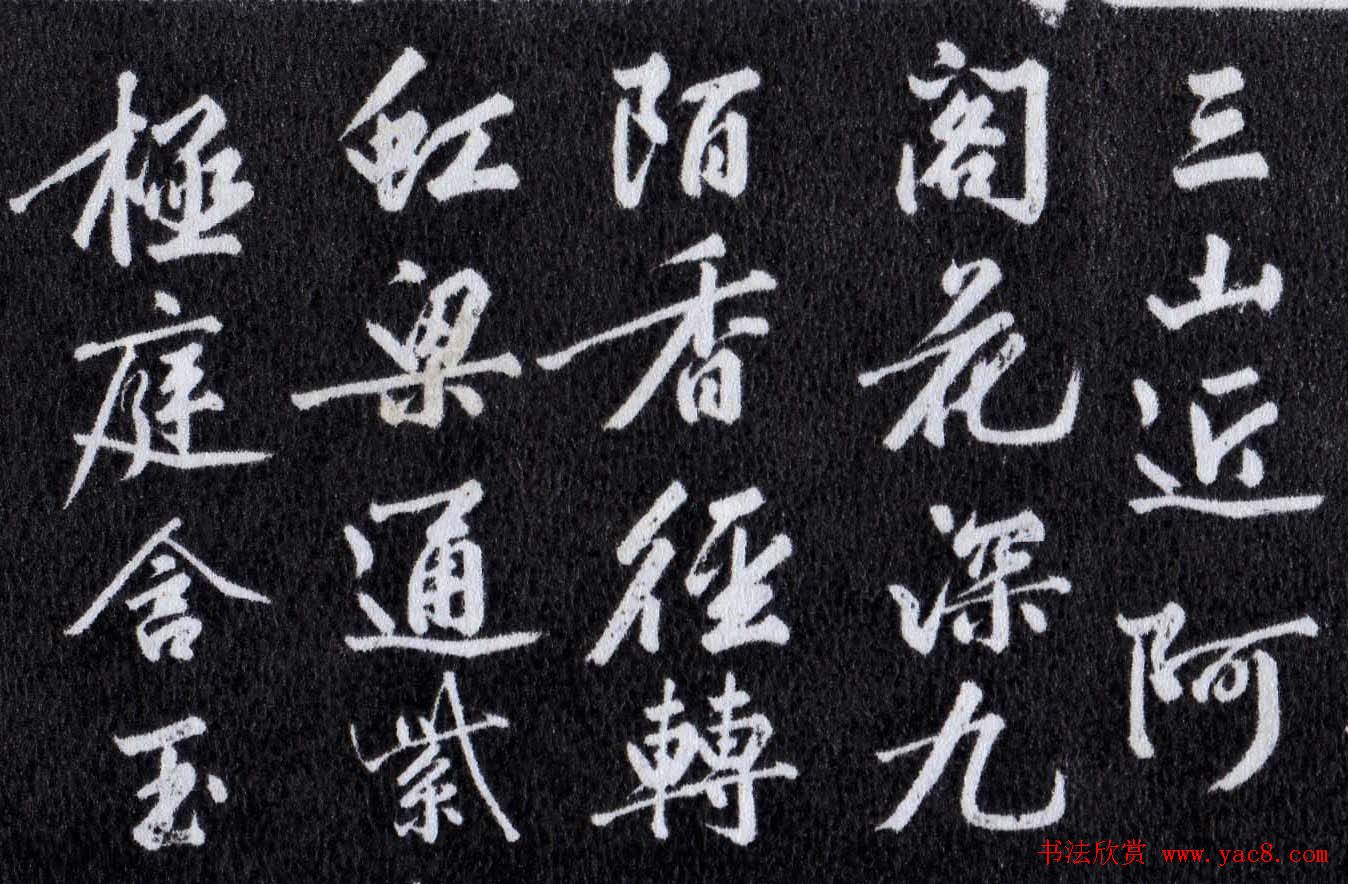 三山近阿
閣花深九
陌香徑轉
虹梁通紫
極庭含玉
书法欣赏 www.yac8.com